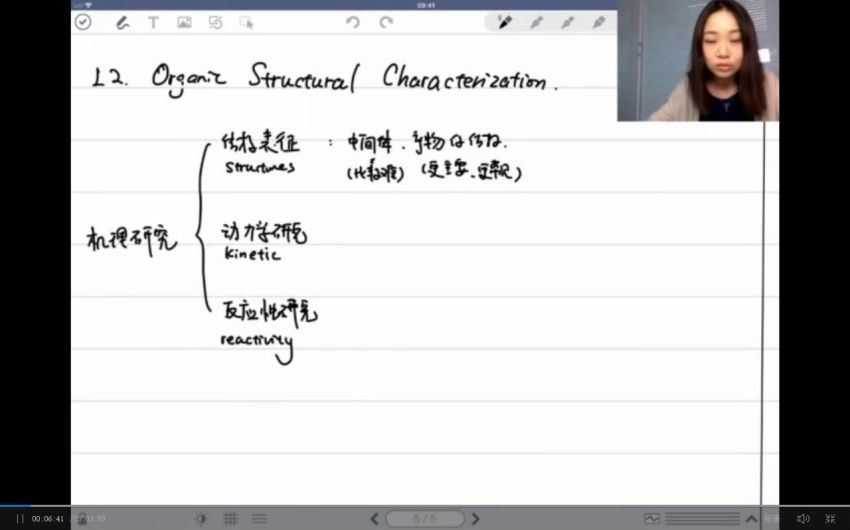 09:41
L2. Organic Structural Characterization.
结构表征 : 中间体. 产物的结构.
structures (比较难) (更主要、更常见)
机理研究
动力学研究
kinetic
反应性研究
reactivity
00:06:41
5/5